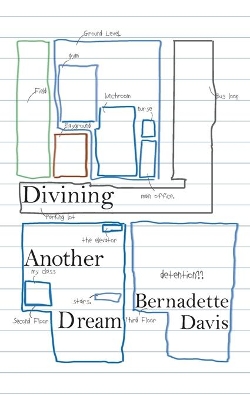 Ground Level
Gym
Field
lunchroom
nurse
Bus lane
playground
main office
Divining
Parking lot
the elevator
Another
my class
detention??
stairs
Bernadette
Second Floor
Dream
third Floor
Davis